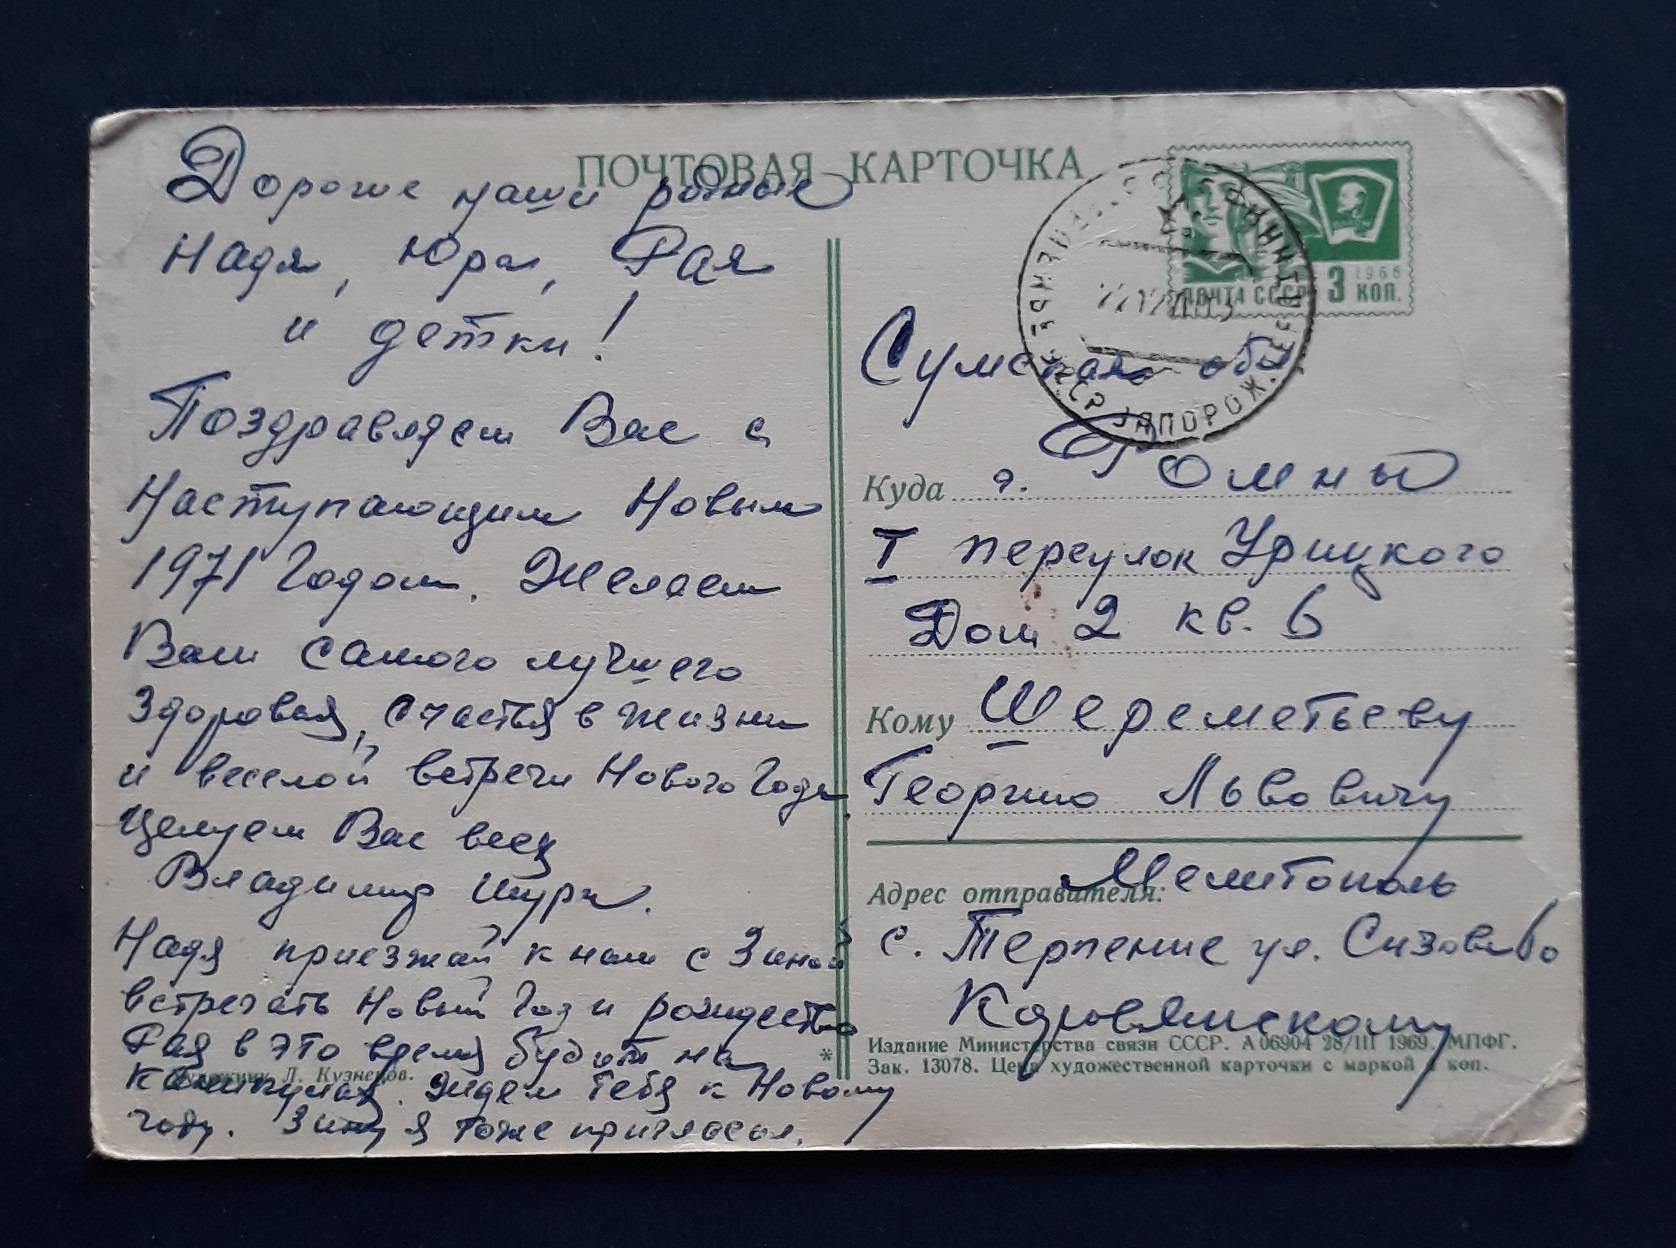 ПОЧТОВАЯ КАРТОЧКА
Дорогие наши родные
Надя, Юра, Рая
и детки!
Поздравляем Вас с
Наступающим Новым
1971 Годом. Желаем
Вам самого лучшего
Здоровья, счастья в жизни
и веселой встречи Нового Года
Целуем Вас всех
Владимир Шура.
Надя приезжай к нам с Зиной
встречать Новый Год и рождество
Рая в это время будит на
каникулах. Ждем тебя к Новому
году. Зину я тоже пригласил.
Л. Кузнецов.
1966
ПОЧТА СССР 3 КОП.
ЗАПОРОЖ.
Сумская обл
Куда г. Ромны
I переулок Урицкого
Дом 2 кв. 6
Кому Шереметьеву
Георгию Львовичу
Адрес отправителя: Мелитополь
с. Терпение ул.
Издание Министерства связи СССР. А 06904 28/III 1969. МПФГ.
Зак. 13078. Цена художественной карточки с маркой коп.